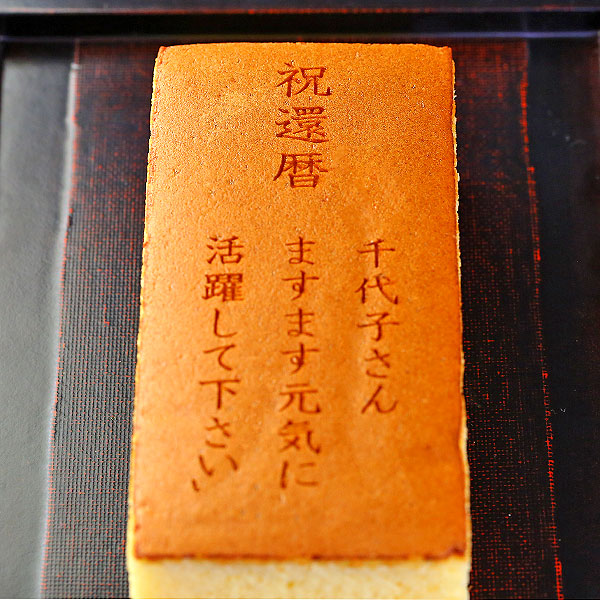 祝還暦
千代子さん
ますます元気に
活躍して下さい